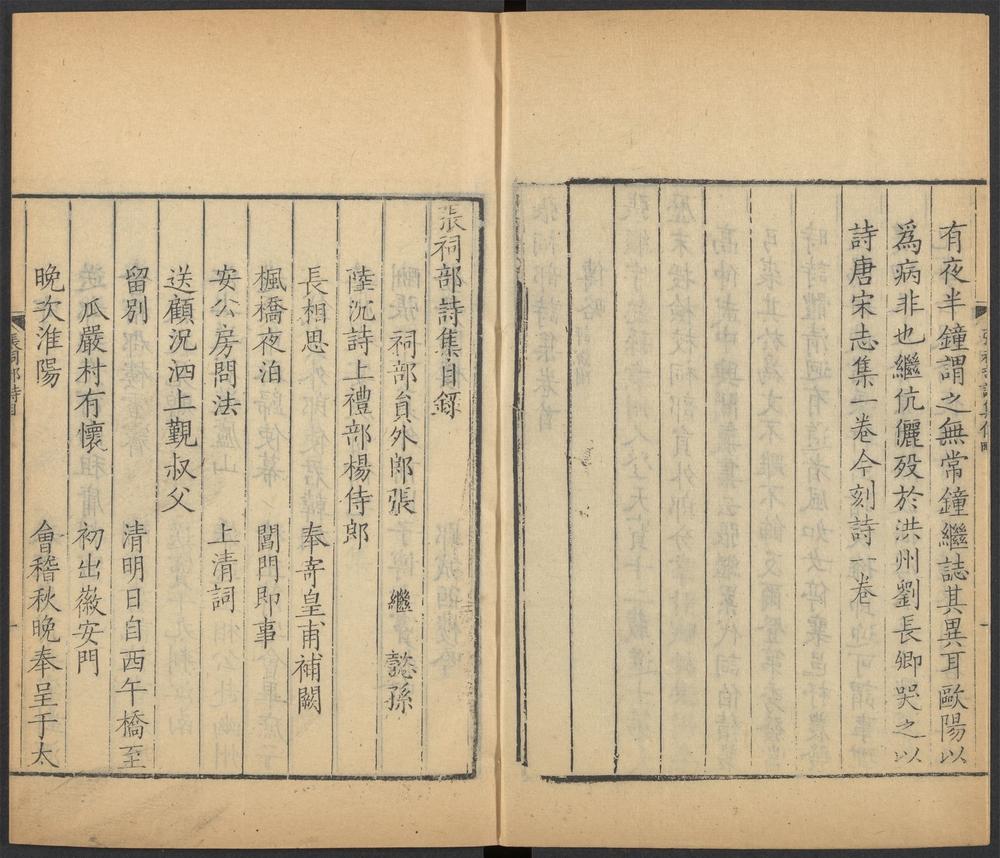 有夜半鐘謂之無常鐘繼誌其異耳歐陽以
為病非也繼伉儷歿於洪州劉長卿哭之以
詩唐宋志集一卷今刻詩一卷
張祠部詩集目錄
祠部員外郎張 繼 懿孫
陸沉詩上禮部楊侍郎
長相思 奉寄皇甫補闕
楓橋夜泊 閶門即事
安公房問法 上清詞
送顧況泗上覲叔父
留別 清明日自西午橋至
瓜巖村有懷 初出徽安門
晚次淮陽 會稽秋晚奉呈于太
張祠部詩目
一